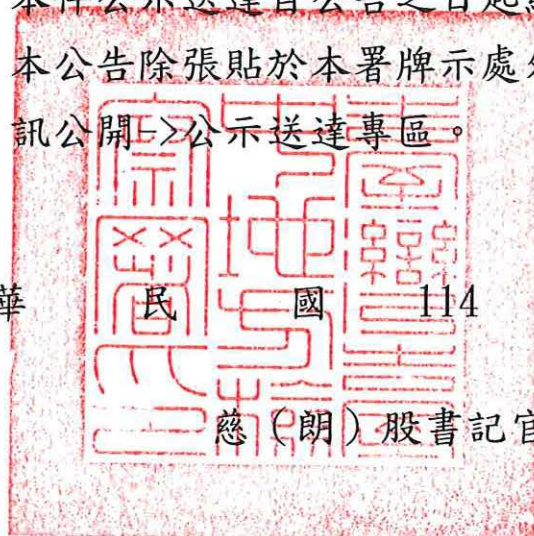 本件公示送達自公告之日起
本公告除張貼於本署牌示處
訊公開->公示送達專區。
華 民 國 114
慈（朗）股書記官